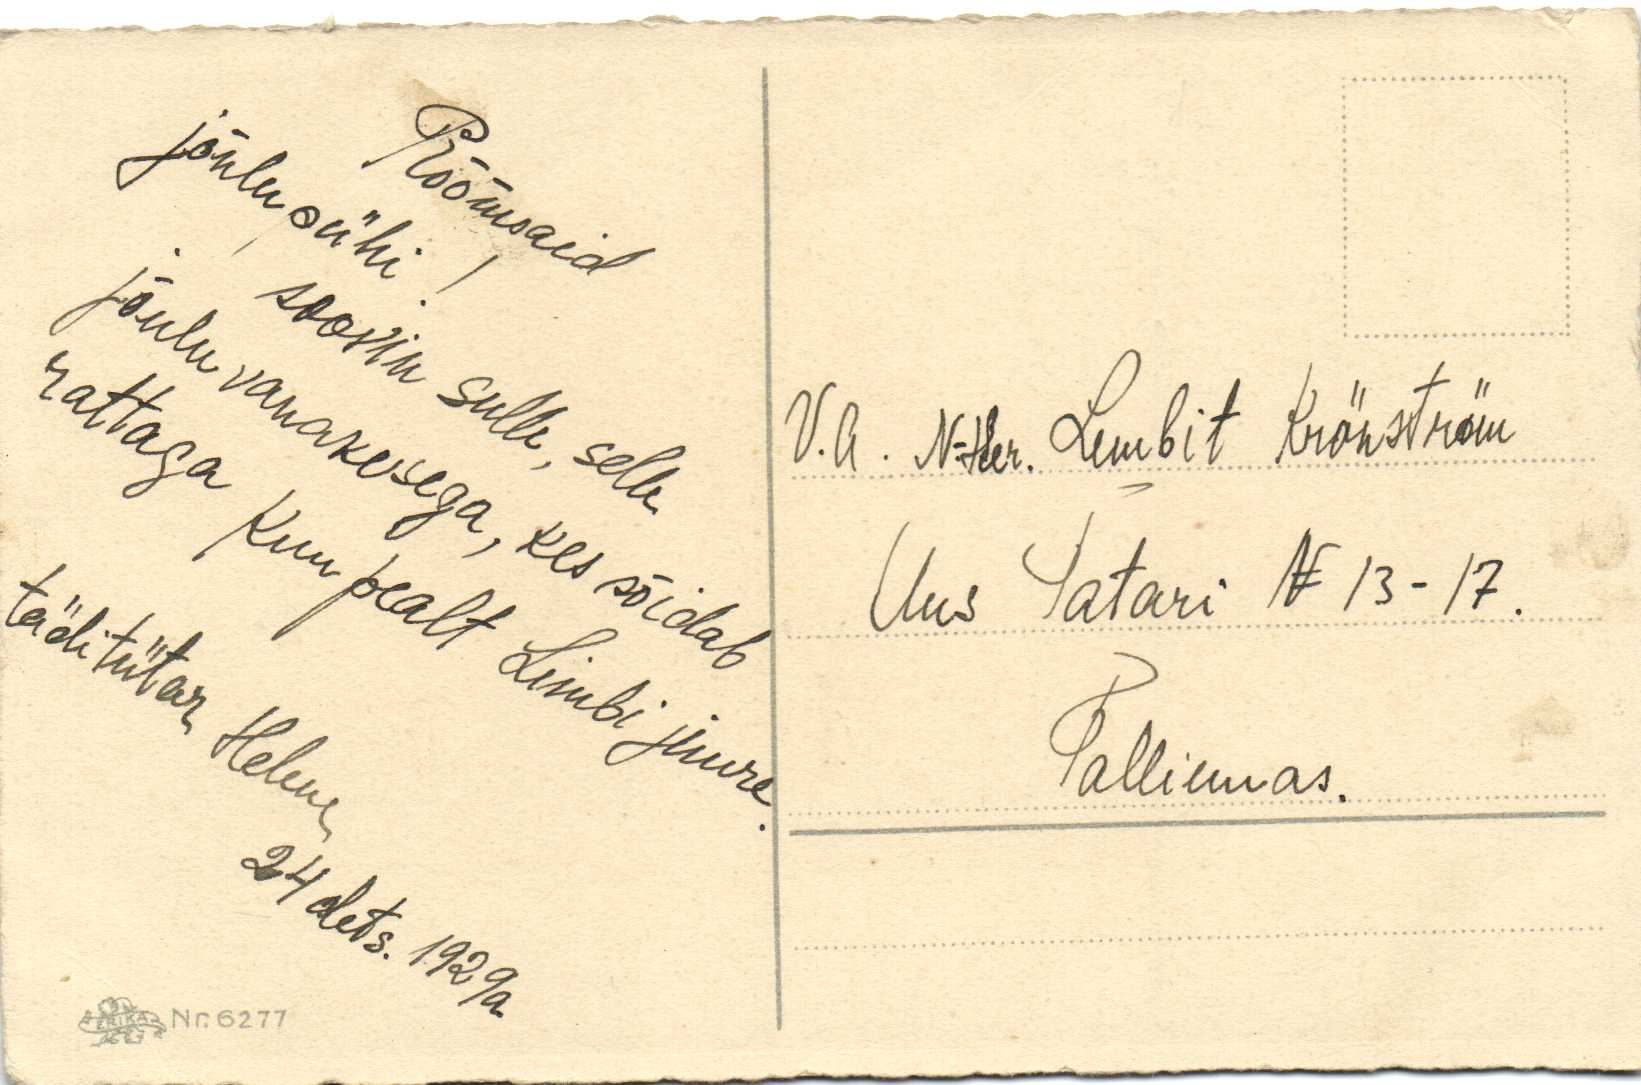 Rõõmsaid
jõulupühi!
soovin sulle, selle
jõuluvanakesega, kes sõidab
rattaga kuu pealt Limbi juure.
täditütar Helene
24 dets. 1929a
Nr. 6277
ERIKA
V.A. N-Her. Lembit Krönström
Uus Tatari № 13-17.
Tallinnas.